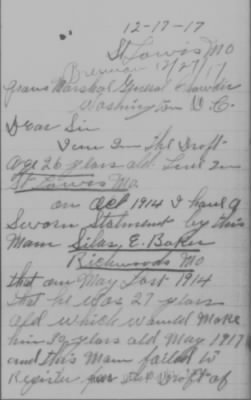 12-17-17
St Louis MO
Brennan 12/27/17
Marshal General Crowder
Washington D. C.
Dear Sir
I am In The Draft
age 26 years old Live In
St Louis Mo.
on Oct 1914 I have a
Sworn Statment by this
Mam Silas, E. Baker
Richwoods Mo
that on May 1914
that he was 27 years
old which would make
him 30 years old May 1917
and this Mam failed to
Register for the Draft of